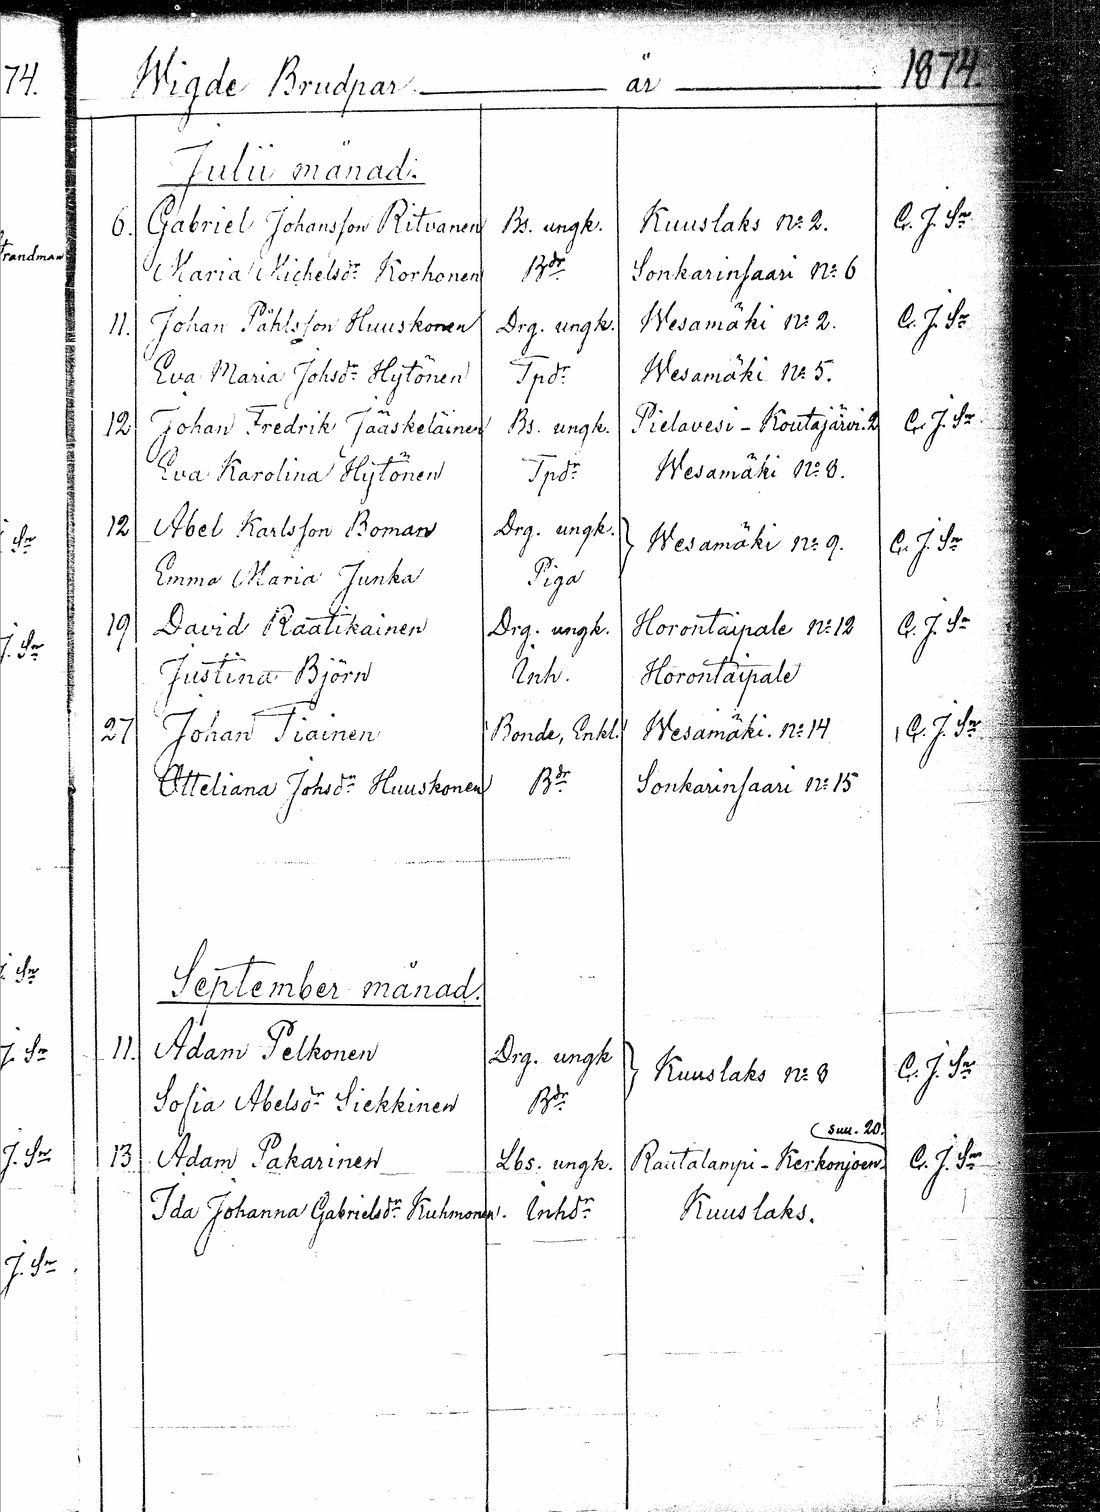 74. Wigde Brudpar. år 1874.
Julii månad.
6. Gabriel Johansson Ritvanen Bs. ungk. Kuuslaks No 2. C. J. Sn
Strandman
Maria Michelsdr Korhonen Bdr Sonkarinsaari No 6
11. Johan Påhlsson Huuskonen Drg. ungk. Wesamäki No 2. C. J. Sn
Eva Maria Johsdr Hytönen Tpdr Wesamäki No 5.
12 Johan Fredrik Jääskeläinen Bs. ungk. Pielavesi - Koutajärvi. 2 C. J. Sn
Eva Karolina Hytönen Tpdr Wesamäki No 8.
12 Abel Karlsson Boman Drg. ungk. } Wesamäki No 9. C. J. Sn
J. Sn
Emma Maria Junka Piga
19 David Raatikainen Drg. ungk. Horontaipale No 12 C. J. Sn
J. Sn
Justina Björn Inh. Horontaipale
27 Johan Tiainen Bonde, Enkl. Wesamäki. No 14 C. J. Sn
Otteliana Johsdr Huuskonen Bdr Sonkarinsaari No 15
J. Sn
September månad.
J. Sn 11. Adam Pelkonen Drg. ungk } Kuuslaks No 8 C. J. Sn
Sofia Abelsdr Siekkinen Bdr
suu. 20.
J. Sn 13 Adam Pakarinen Lbs. ungk. Rautalampi - Kerkonjoen C. J. Sn
Ida Johanna Gabrielsdr Kuhmonen. Inhdr Kuuslaks.
J. Sn